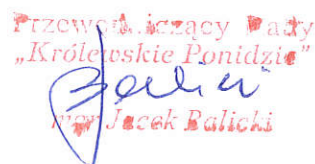 Przewodniczący Rady
„Królewskie Ponidzie"
mgr Jacek Balicki